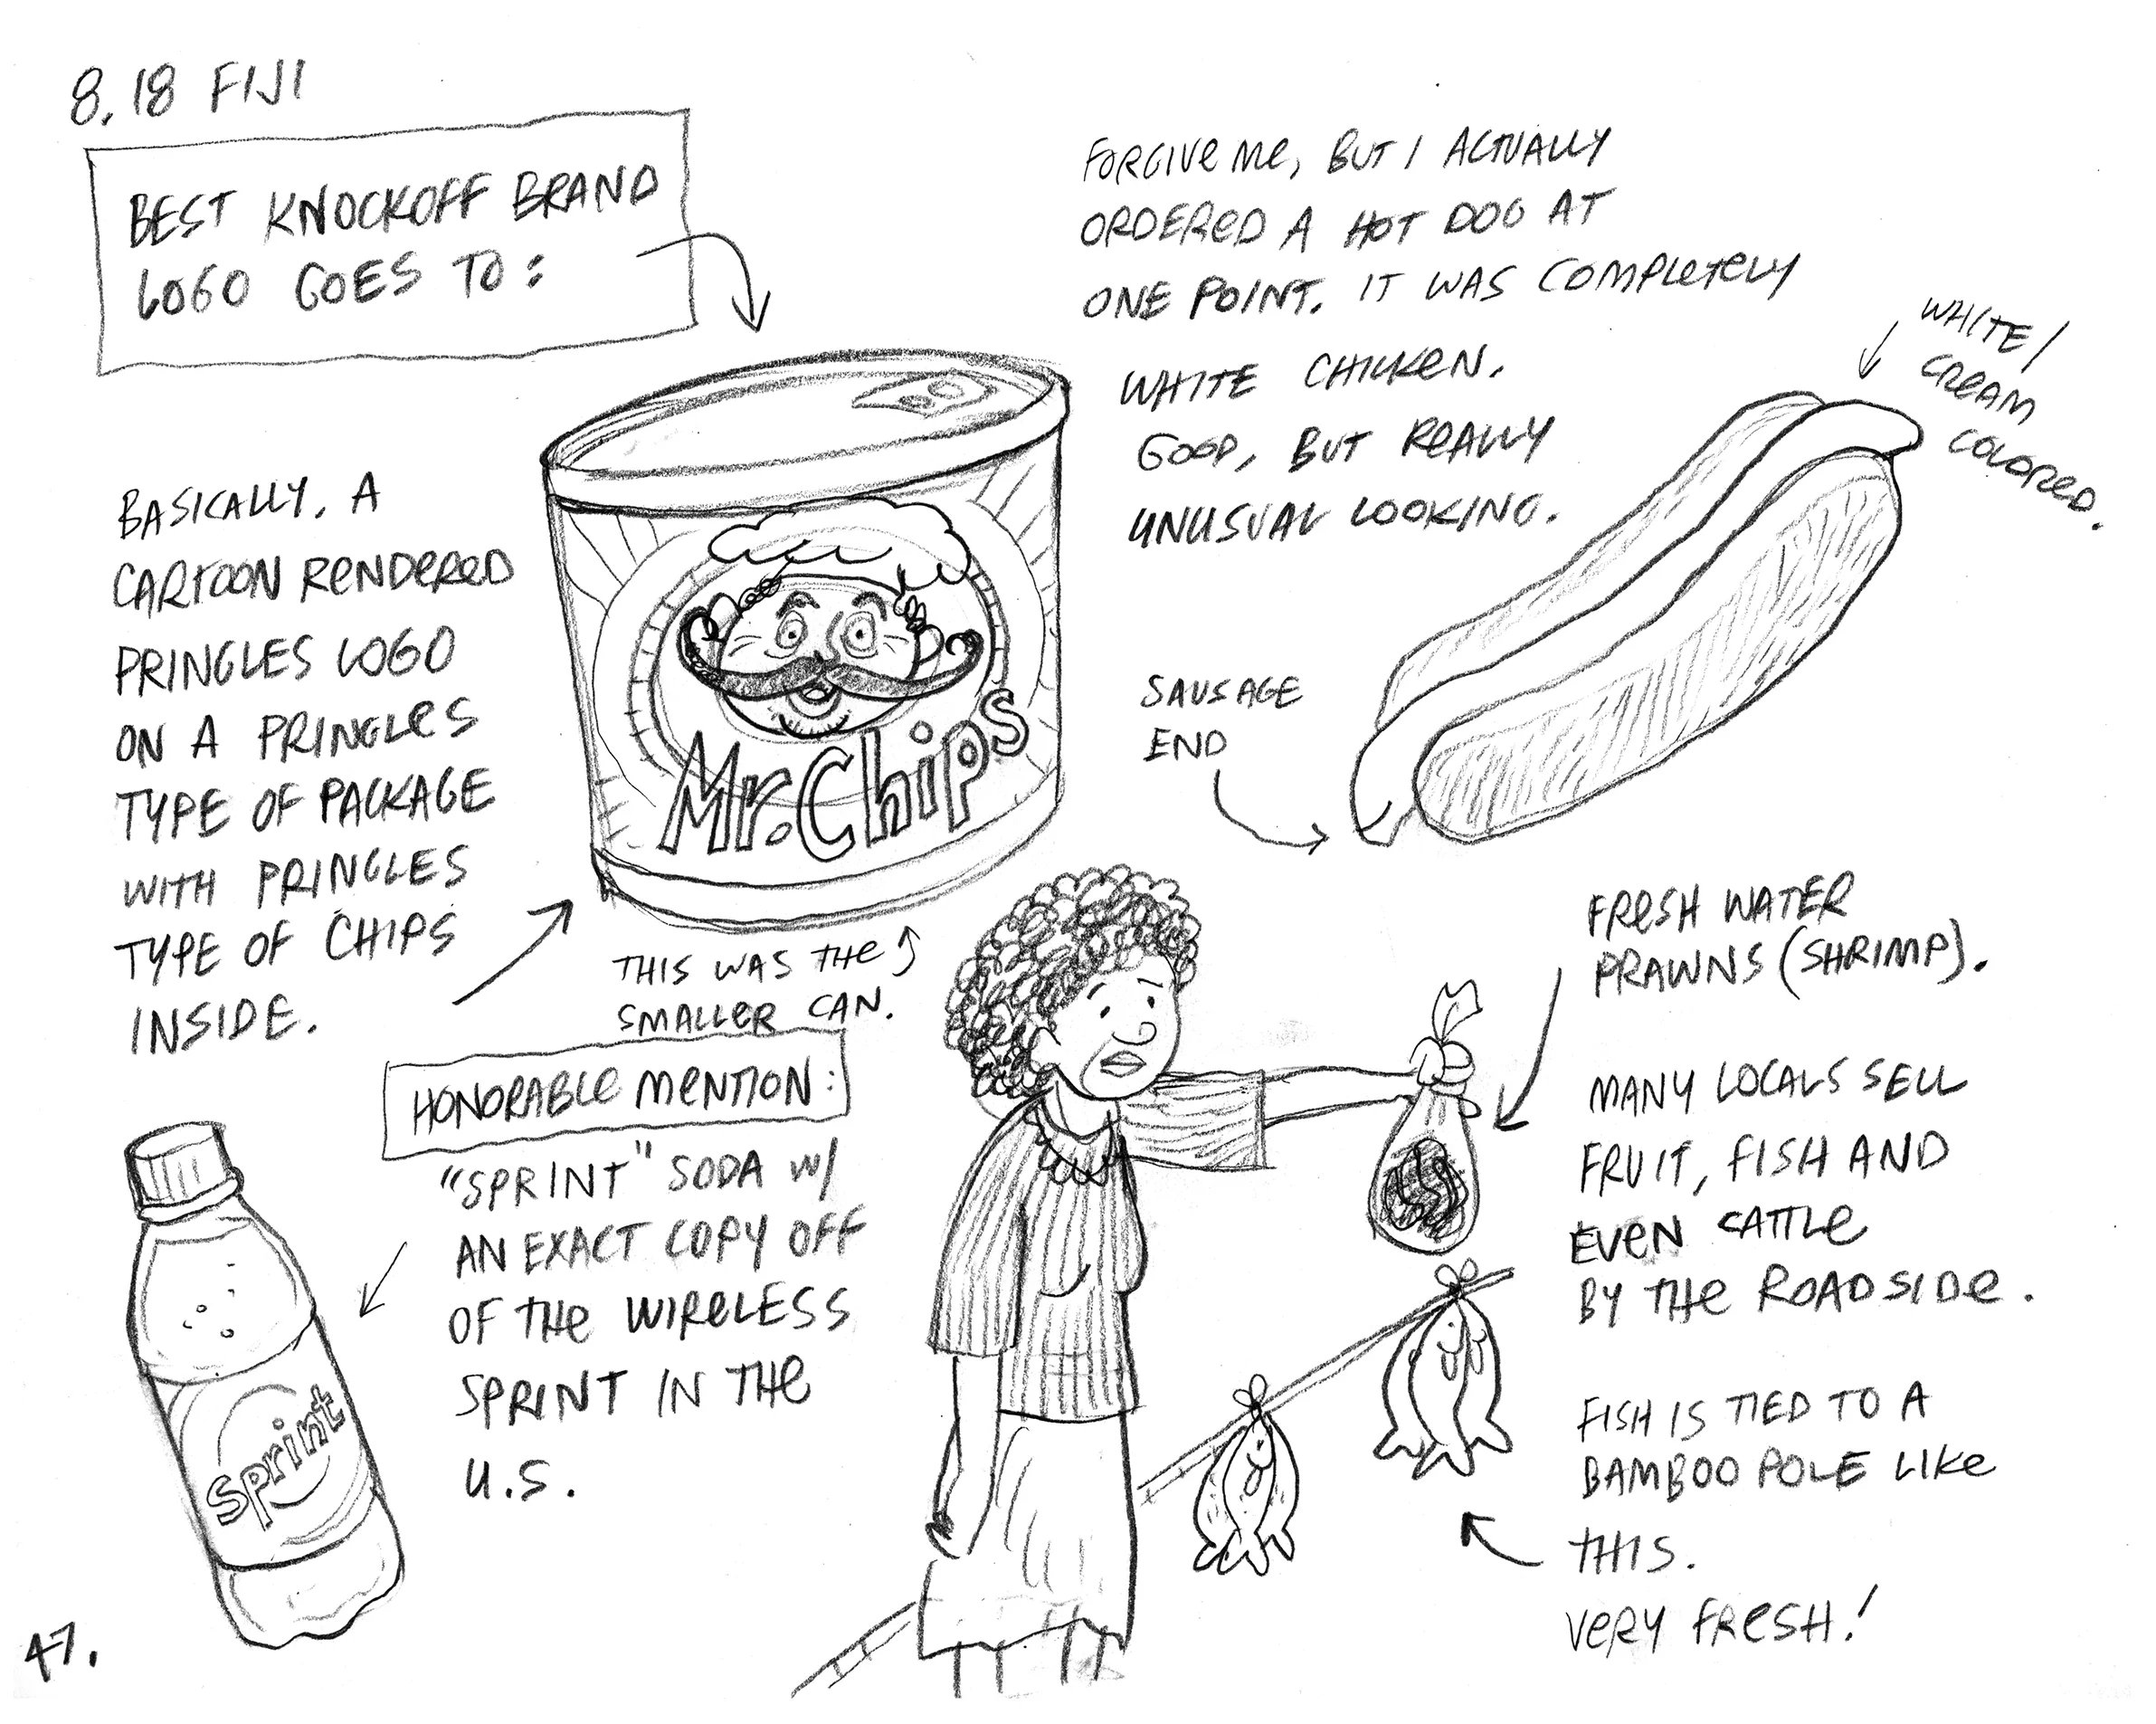 8.18 FIJI
BEST KNOCKOFF BRAND
LOGO GOES TO:
BASICALLY, A
CARTOON RENDERED
PRINGLES LOGO
ON A PRINGLES
TYPE OF PACKAGE
WITH PRINGLES
TYPE OF CHIPS
INSIDE.
Mr. Chips
THIS WAS THE
SMALLER CAN.
FORGIVE ME, BUT I ACTUALLY
ORDERED A HOT DOG AT
ONE POINT. IT WAS COMPLETELY
WHITE CHICKEN.
GOOD, BUT REALLY
UNUSUAL LOOKING.
WHITE/
CREAM
COLORED.
SAUSAGE
END
HONORABLE MENTION:
"SPRINT" SODA W/
AN EXACT COPY OFF
OF THE WIRELESS
SPRINT IN THE
U.S.
Sprint
FRESH WATER
PRAWNS (SHRIMP).
MANY LOCALS SELL
FRUIT, FISH AND
EVEN CATTLE
BY THE ROADSIDE.
FISH IS TIED TO A
BAMBOO POLE LIKE
THIS.
VERY FRESH!
47.